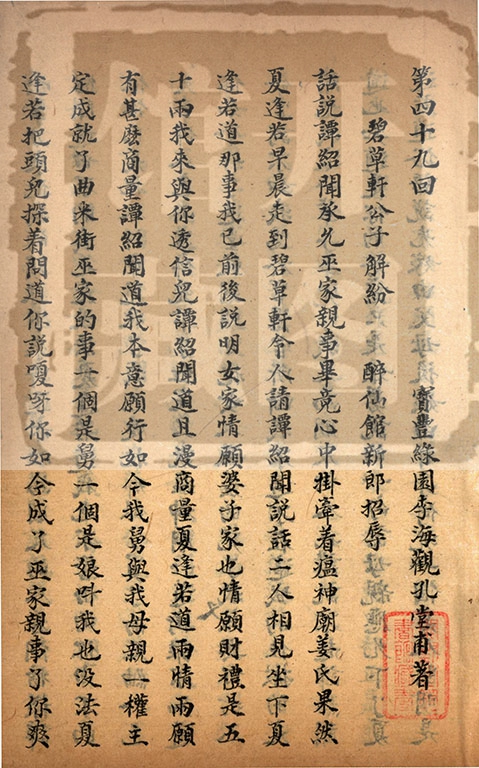 第四十九回　寳豐綠園李海觀孔堂甫著
碧草軒公子解紛　醉仙館新郎招辱
話說譚紹聞承允巫家親事畢竟心中掛牽着瘟神廟姜氏果然
夏逢若早晨走到碧草軒令人請譚紹聞說話二人相見坐下夏
逢若道那事我已前後說明女家情願婆子家也情願財禮是五
十兩我來與你透信兒譚紹聞道且漫商量夏逢若道兩情兩願
有甚麽商量譚紹聞道我本意願行如今我舅與我母親一權主
定成就了曲米街巫家的事一個是舅一個是娘呌我也没法夏
逢若把頭兒探着問道你說嗄呀你如今成了巫家親事了你爽